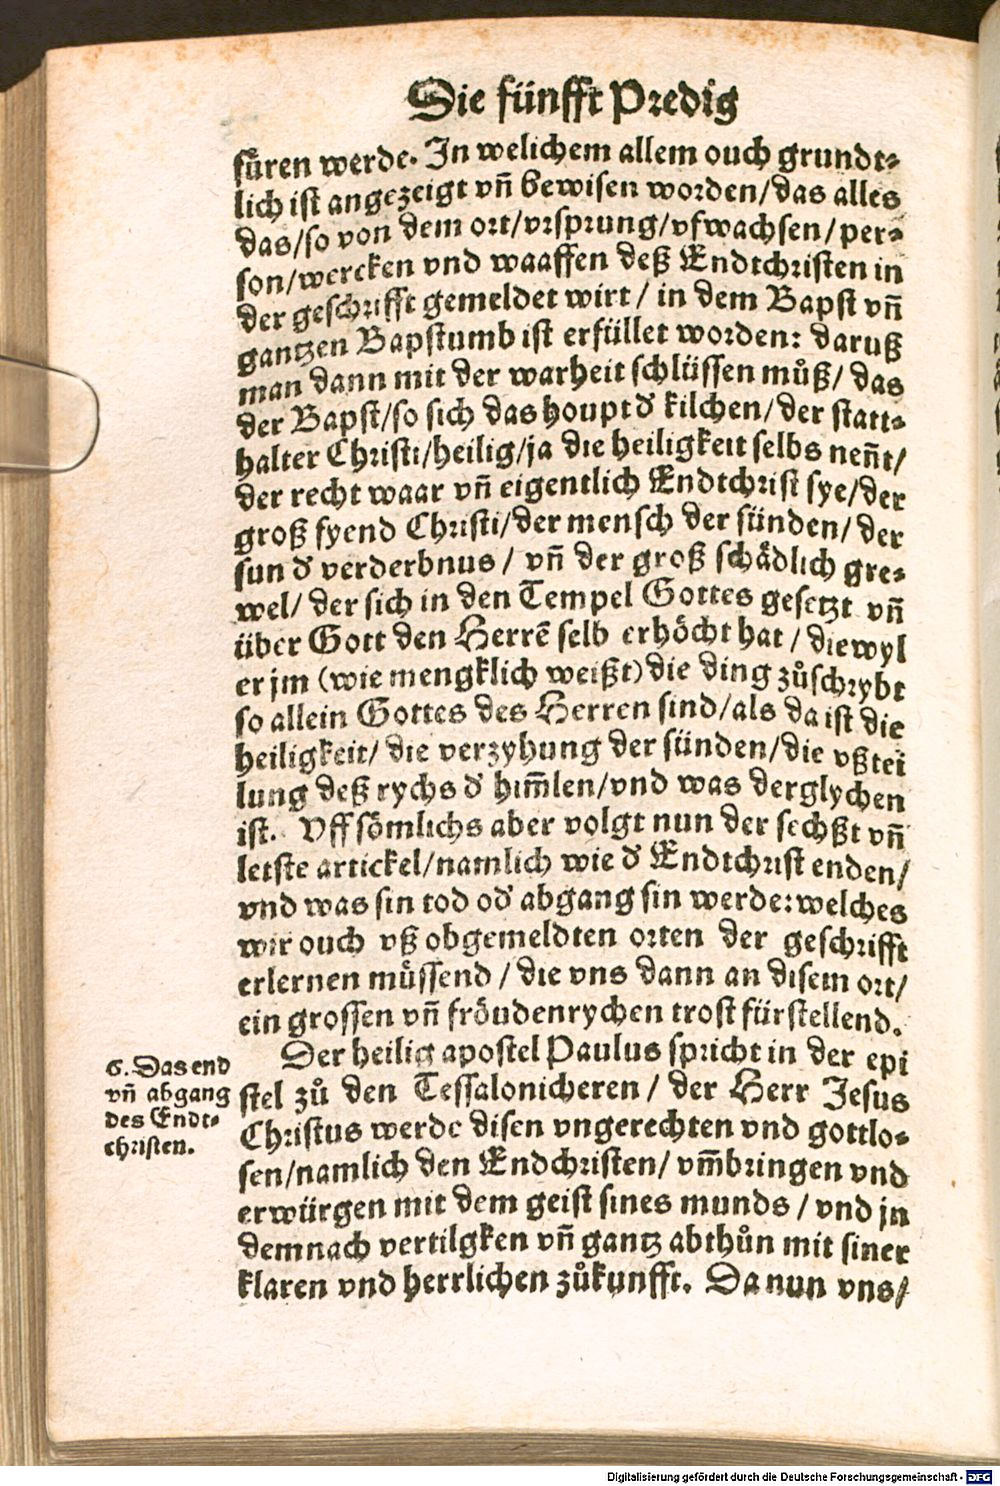 Die fünfft Predig
fůren werde. In welichem allem ouch grundt⸗
lich ist angezeigt vñ bewisen worden/das alles
das/so von dem ort/vrsprung/vfwachsen/per⸗
son/wercken vnd waaffen deß Endtchristen in
der geschrifft gemeldet wirt/ in dem Bapst vñ
gantzen Bapstumb ist erfüllet worden: daruß
man dann mit der warheit schlüssen můß/ das
der Bapst/so sich das houpt d' kilchen/der statt⸗
halter Christi/heilig/ja die heiligkeit selbs neñt/
der recht waar vñ eigentlich Endtchrist sye/der
groß fyend Christi/der mensch der sünden/ der
sun d' verderbnus/ vñ der groß schådlich gre⸗
wel/ der sich in den Tempel Gottes gesetzt vñ
über Gott den Herrẽ selb erhöcht hat/ diewyl
er jm (wie mengklich weißt) die ding zůschrybt
so allein Gottes des Herren sind/als da ist die
heiligkeit/ die verzyhung der sünden/die vßtei
lung deß rychs d' him̃len/vnd was derglychen
ist. Vff sömlichs aber volgt nun der sechßt vñ
letste artickel/namlich wie d' Endtchrist enden/
vnd was sin tod od' abgang sin werde:welches
wir ouch vß obgemeldten orten der geschrifft
erlernen müssend/die vns dann an disem ort/
ein grossen vñ fröudenrychen trost fürstellend.
Der heilig apostel Paulus spricht in der epi
6. Das end
vñ abgang
des Endt⸗
christen.
stel zů den Tessalonicheren/ der Herr Jesus
Christus werde disen vngerechten vnd gottlo⸗
sen/namlich den Endchristen/ vm̃bringen vnd
erwürgen mit dem geist sines munds/vnd jn
demnach vertilgken vñ gantz abthůn mit siner
klaren vnd herrlichen zůkunfft. Da nun vns/
Digitalisierung gefördert durch die Deutsche Forschungsgemeinschaft - DFG